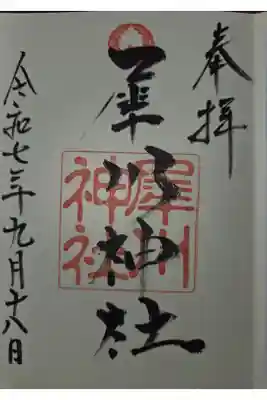 奉拝
犀川神社
犀川神社
令和七年九月十八日